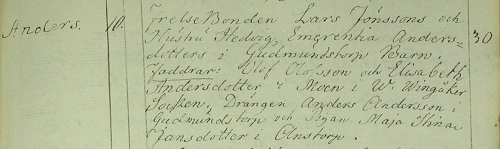 Anders. 10. FrelseBonden Lars Jönssons och 30
Hustru Hedvig Emgrenha Anders=
dotters i Gudmundstorp Barn.
Faddrar: Olof Olofsson och Elisabeth
Andersdotter i Moen i W. Wingåker
Socken, Drängen Anders Andersson i
Gudmundstorp och Pigan Maja Stina
Jansdotter i Anstorp.